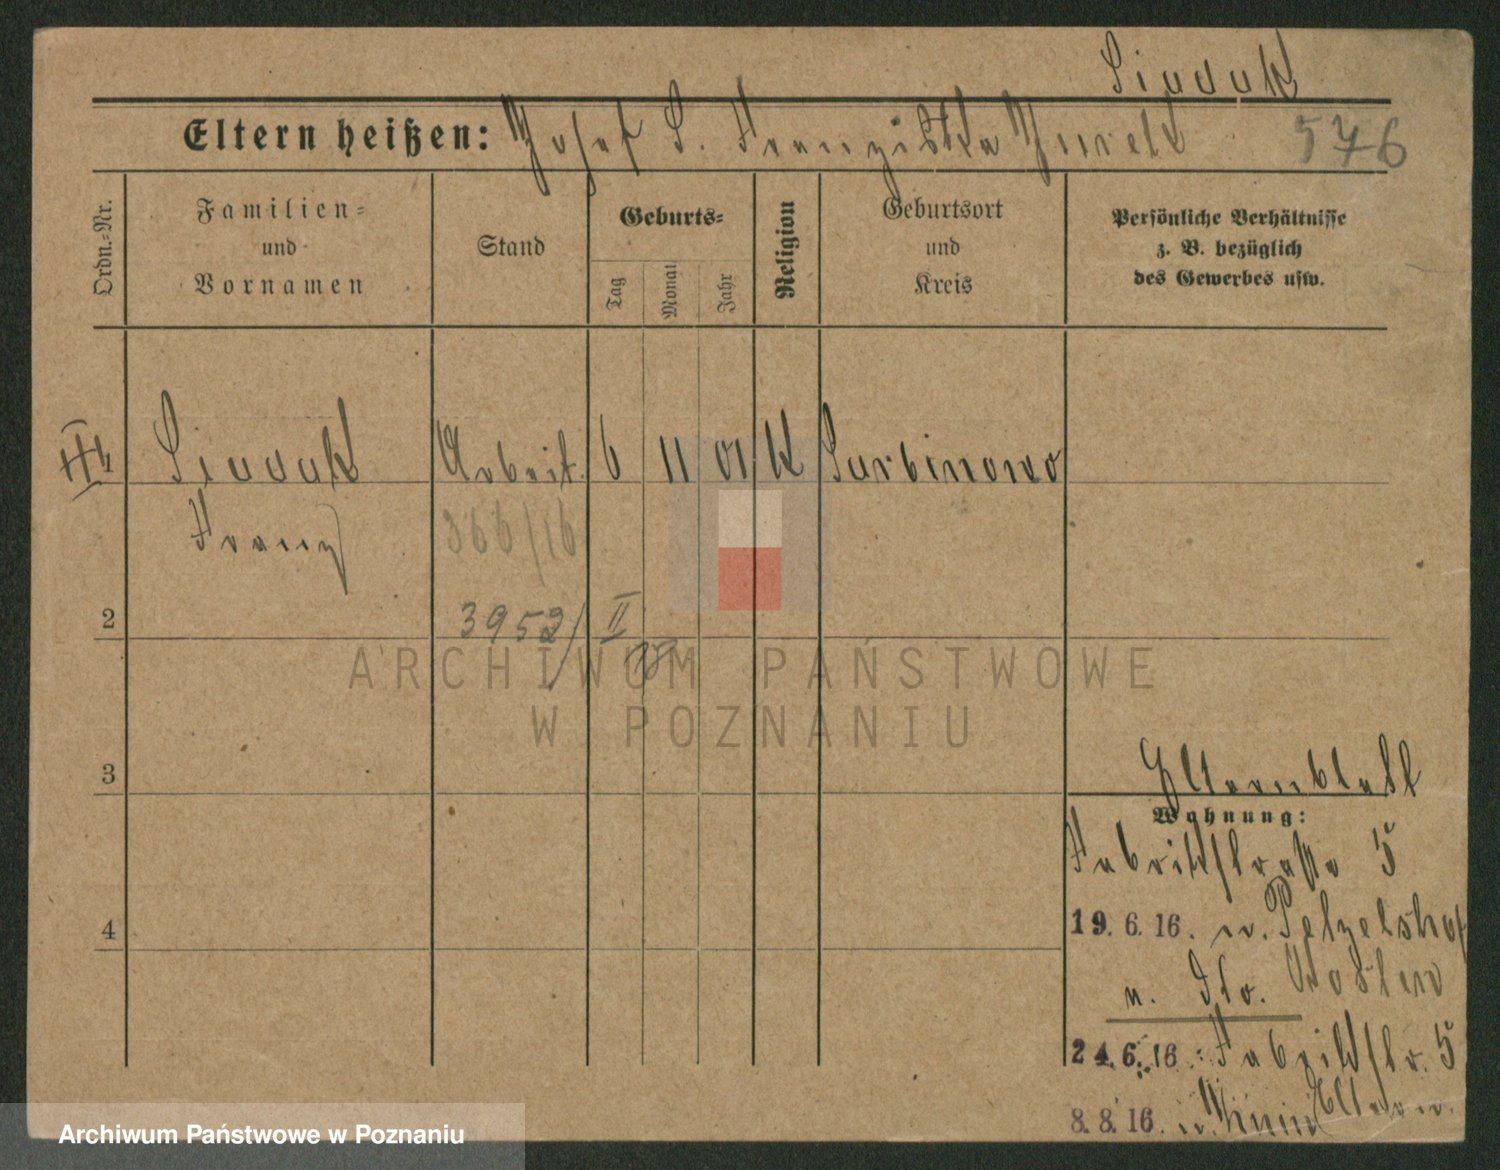 Siuduk
Eltern heißen: Josef S. Franziska Jurek 576
Ordn.-Nr.
Familien-
und
Vornamen
Stand
Geburts-
Tag
Monat
Jahr
Religion
Geburtsort
und
Kreis
Persönliche Verhältnisse
z. B. bezüglich
des Gewerbes usw.
1 Siuduk Arbeit. 6 11 01 K Surbinowo
Franz 366/16
2 3952/ II
ARCHIWUM PAŃSTWOWE
W POZNANIU
3
Elternblatt
Wohnung:
Fabrikstraße 5
4
19.6.16. n. Petzelshof
n. Ostrowo
24.6.16. Fabrikstr. 5
8.8.16. n.
Archiwum Państwowe w Poznaniu